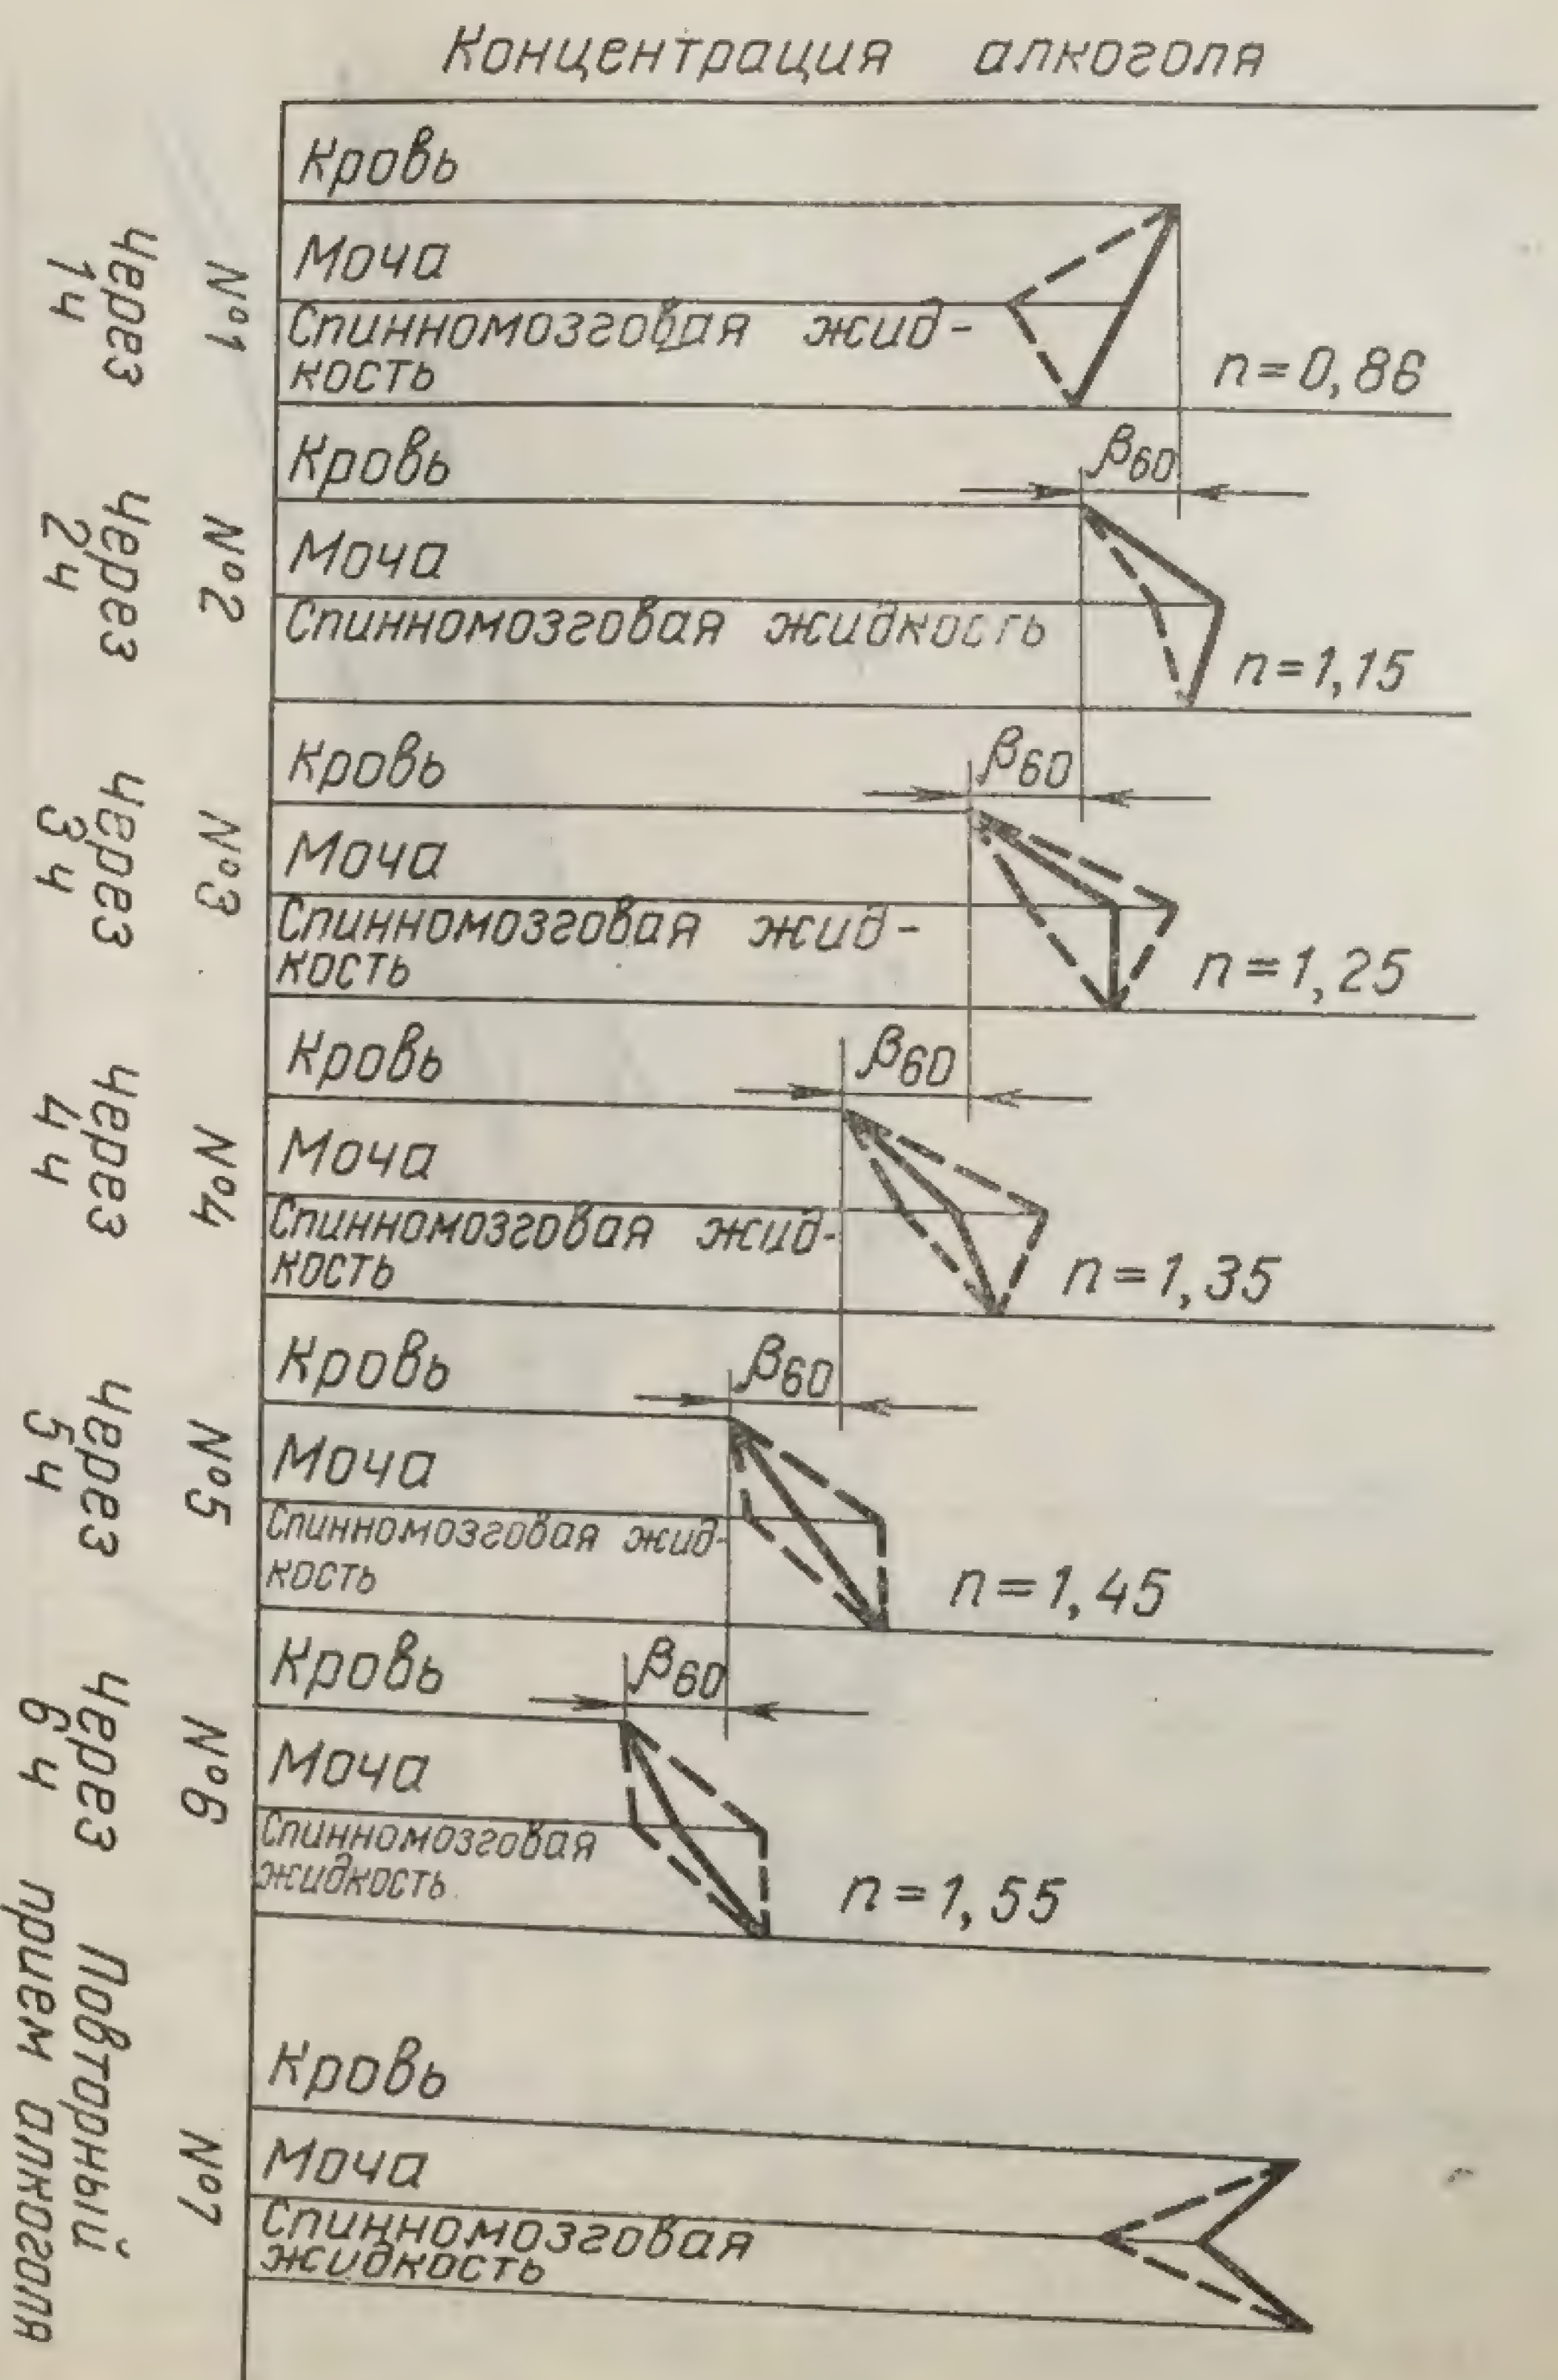 Концентрация алкоголя
Через
1 ч
№1
Кровь
Моча
Спинномозговая жид-
кость
n=0,86
Через
2 ч
№2
Кровь
β60
Моча
Спинномозговая жидкость
n=1,15
Через
3 ч
№3
Кровь
β60
Моча
Спинномозговая жид-
кость
n=1,25
Через
4 ч
№4
Кровь
β60
Моча
Спинномозговая жид-
кость
n=1,35
Через
5 ч
№5
Кровь
β60
Моча
Спинномозговая жид-
кость
n=1,45
Через
6 ч
№6
Кровь
β60
Моча
Спинномозговая
жидкость
n=1,55
Повторный
прием алкоголя
№7
Кровь
Моча
Спинномозговая
жидкость